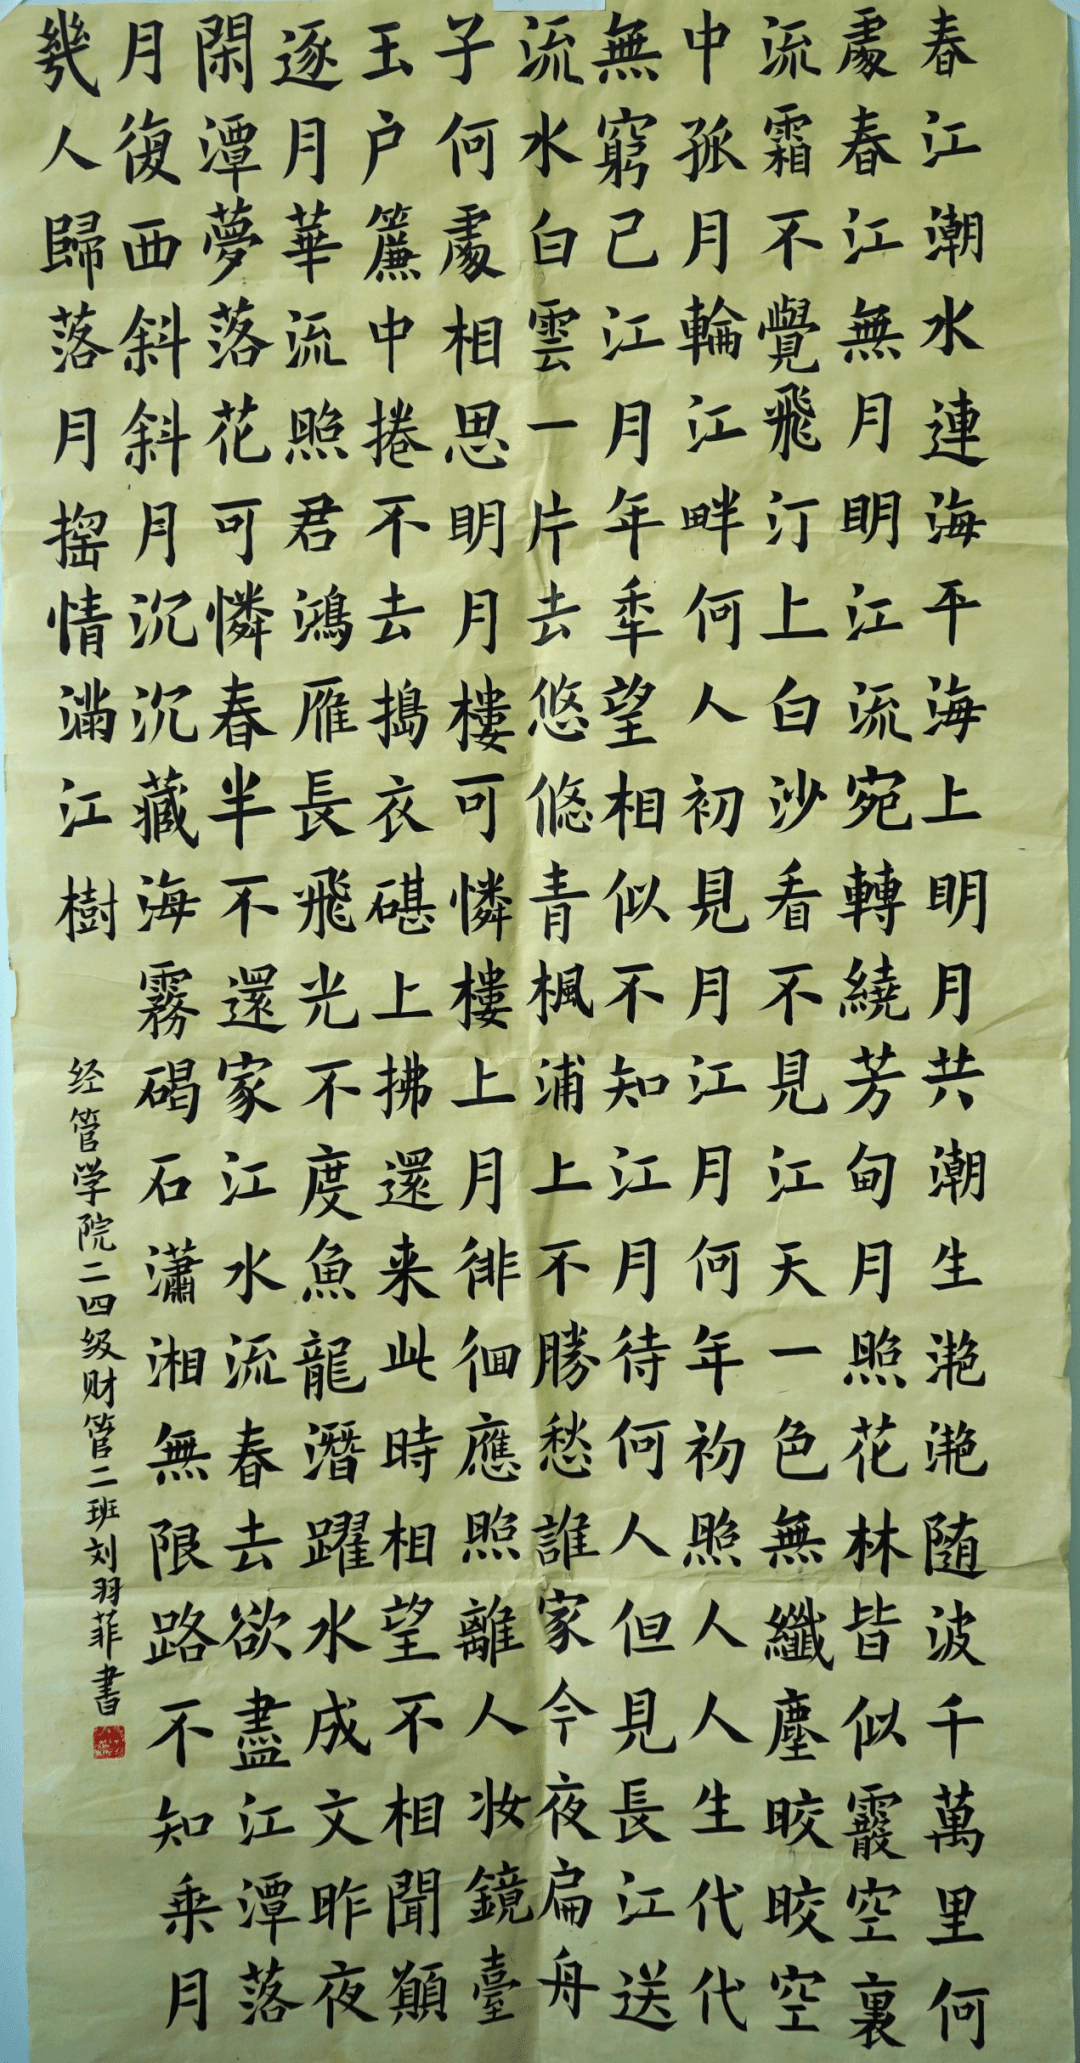 春江潮水連海平海上明月共潮生滟滟随波千萬里何
處春江無月明江流宛轉繞芳甸月照花林皆似霰空裏
流霜不覺飛汀上白沙看不見江天一色無纖塵皎皎空
中孤月輪江畔何人初見月江月何年初照人人生代代
無窮己江月年年望相似不知江月待何人但見長江送
流水白雲一片去悠悠青楓浦上不勝愁誰家今夜扁舟
子何處相思明月樓可憐樓上月徘徊應照離人妆鏡臺
玉户簾中捲不去搗衣碪上拂還来此時相望不相聞願
逐月華流照君鴻雁長飛光不度魚龍潛躍水成文昨夜
閑潭夢落花可憐春半不還家江水流春去欲盡江潭落
月復西斜斜月沉沉藏海霧碣石瀟湘無限路不知乘月
幾人歸落月摇情滿江樹
经管学院二四级财管二班刘羽菲書